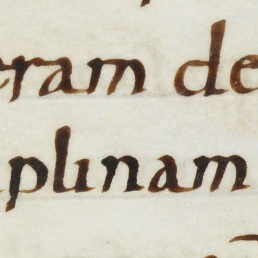 eram de
plinam